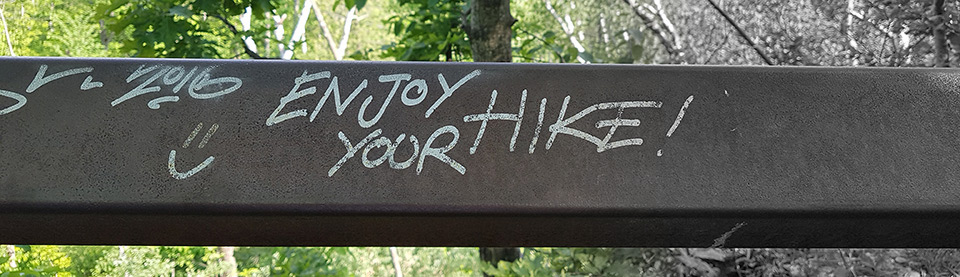 2016
ENJOY
YOUR HIKE!